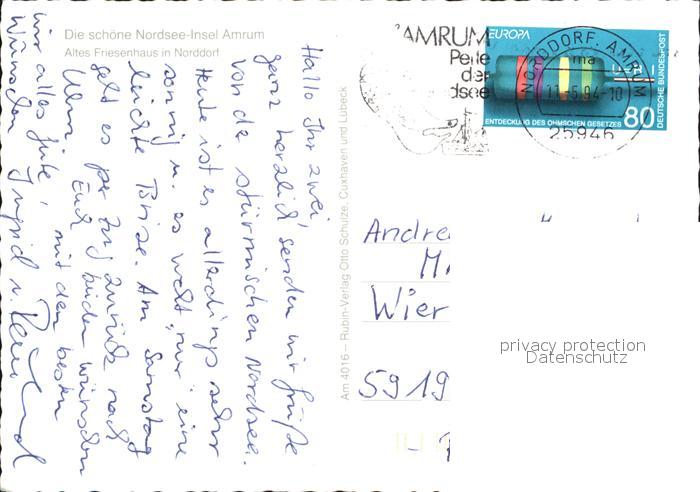 Die schöne Nordsee-Insel Amrum
Altes Friesenhaus in Norddorf
Hallo Ihr zwei,
ganz herzlich senden wir Grüße
von der stürmischen Nordsee.
Heute ist es allerdings sehr
sonnig u. es weht "nur" eine
leichte Brise. Am Samstag
geht es per Zug zurück nach
Ulm. Euch beiden wünschen
wir alles Gute, mit den besten
Wünschen Ingrid u.
Am 4016 – Rubin-Verlag Otto Schulze, Cuxhaven und Lübeck
AMRUM
Perle
der
dsee
EUROPA
DEUTSCHE BUNDESPOST
ENTDECKUNG DES OHMSCHEN GESETZES 80
NORDDORF, AMRUM
ma
11.-5.94-10
25946
Andre
M
Wier
5919
privacy protection
Datenschutz